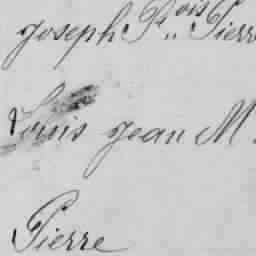 joseph Fçois Pierre
Louis jean M.
Pierre